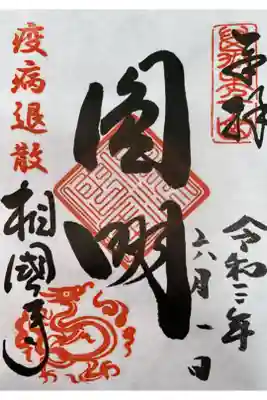 奉拝
令和三年
六月一日
圓明
疫病退散
相國寺